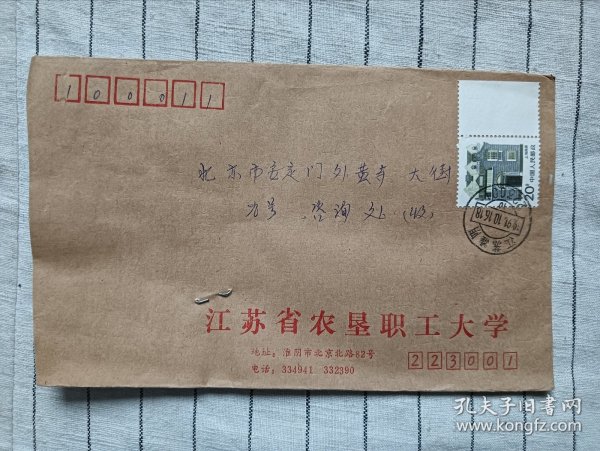 100011
北京市安定门外黄寺大街
咨询处(收)
20
中国人民邮政
江苏省农垦职工大学
地址:淮阴市北京北路82号
电话:334941 332390
223001
孔夫子旧书网
www.kongfz.com